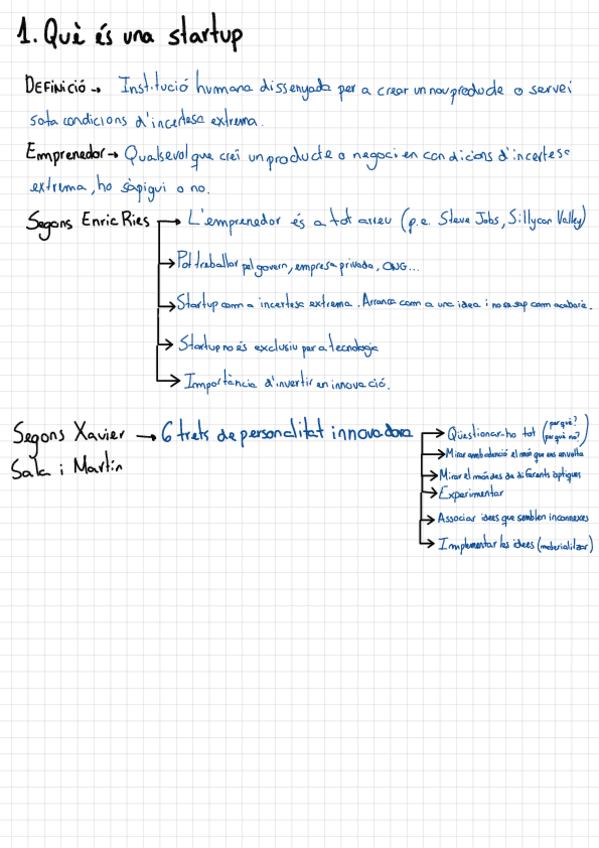 1. Què és una startup
DEFINICIÓ → Institució humana dissenyada per a crear un nou producte o servei
sota condicions d'incertesa extrema.
Emprenedor → Qualsevol que creï un producte o negoci en condicions d'incertesa
extrema, ho sàpigui o no.
Segons Enric Ries → L'emprenedor és a tot arreu (p.e. Steve Jobs, Sillycon Valley)
→ Pot treballar pel govern, empresa privada, ONG...
→ Startup com a incertesa extrema. Arranca com a una idea i no se sap com acabarà.
→ Startup no és exclusiu per a tecnologia
→ Importància d'invertir en innovació.
Segons Xavier → 6 trets de personalitat innovadora → Qüestionar-ho tot (per què? per què no?)
Sala i Martín → Mirar amb atenció el món que ens envolta
→ Mirar el món des de diferents òptiques
→ Experimentar
→ Associar idees que semblen inconnexes
→ Implementar les idees (materialitzar)